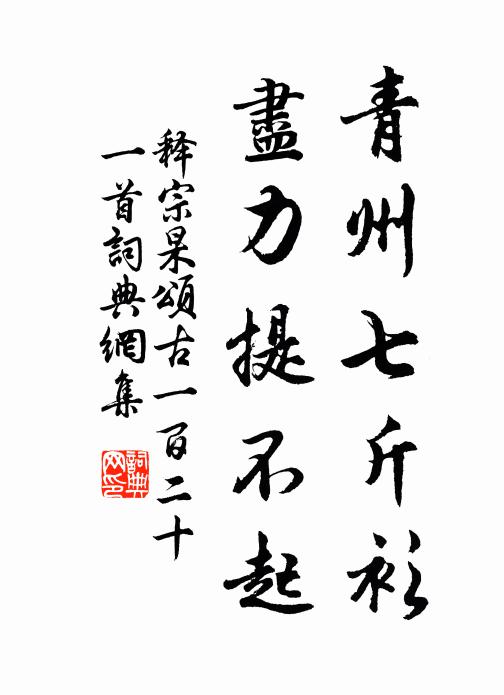 青州七斤衫
盡力提不起
释宗杲頌古一百二十
一首詞典網集
詞典
网印